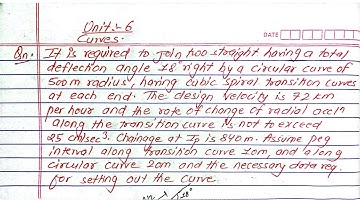 Unit:- 6
Curves.
DATE
Qn. It is required to join two straight having a total
deflection angle 18° right by a circular curve of
500m radius, having cubic spiral transition curves
at each end. The design velocity is 72 km
per hour and the rate of change of radial accln
along the transition curve is not to exceed
25 cm/sec³. Chainage at Ip is 840m. Assume peg
interval along transition curve 10m, and along
circular curve 20m and the necessary data req.
for setting out the curve.
18°